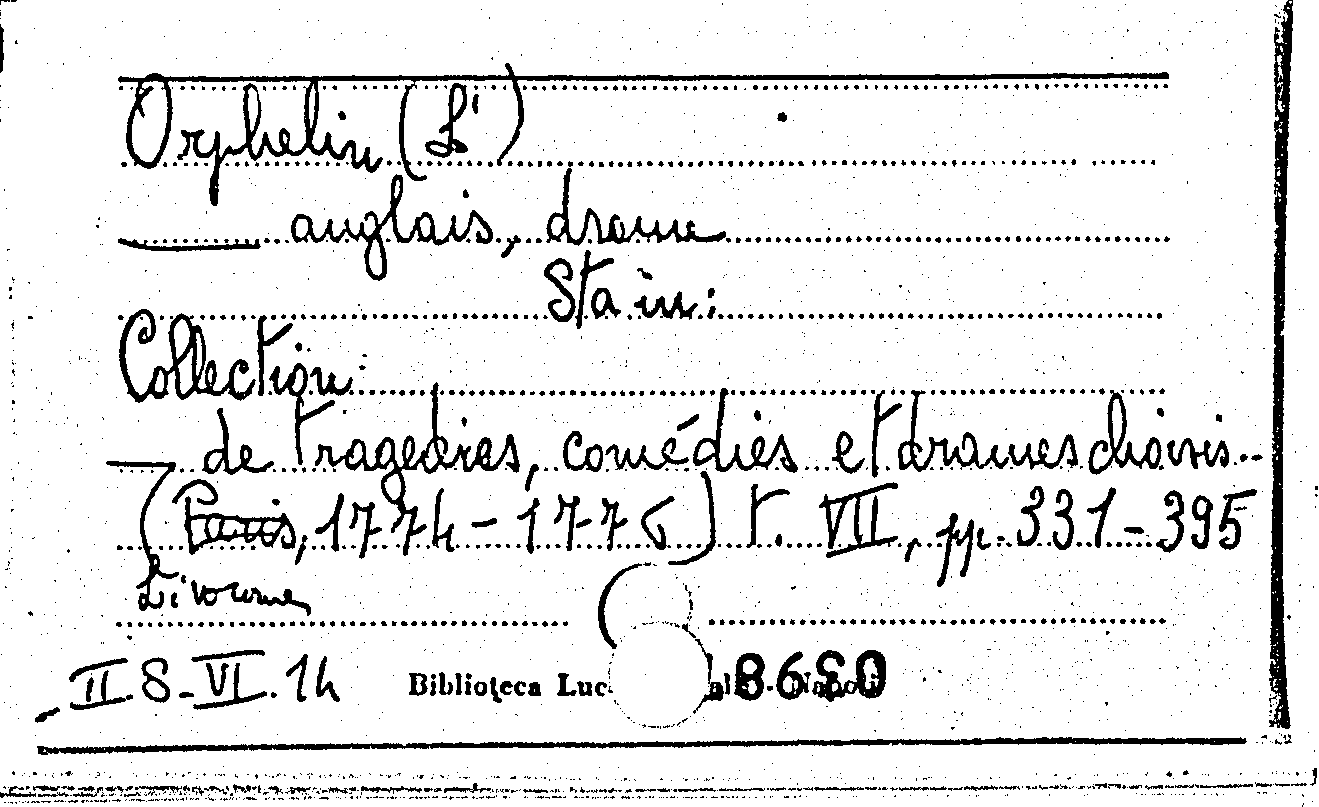 Orphelin (L')
—— anglais, drame
Sta in:
Collection
— de tragedies, comédies et drames choisis..
(Paris, 1774-1776) T. VII, pp. 331-395
Livourne
II.8.VI.14 Biblioteca